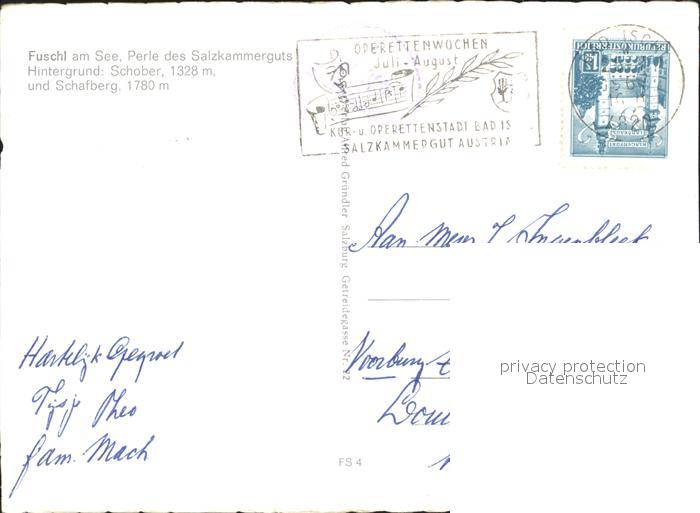 Fuschl am See, Perle des Salzkammerguts
Hintergrund: Schober, 1328 m,
und Schafberg, 1780 m
OPERETTENWOCHEN
Juli - August
KUR- u. OPERETTENSTADT BAD IS
SALZKAMMERGUT AUSTRIA
REPUBLIK ÖSTERREICH
Alfred Gründler Salzburg Getreidegasse Nr. 22
Aan Mevr
Voorburg
Hartelijk Gegroet
Theo
fam. Mach
FS 4
privacy protection
Datenschutz